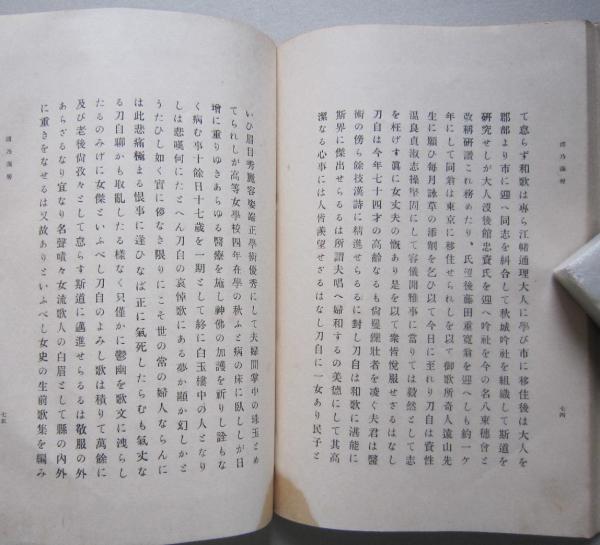 て怠らず和歌は専ら江幡通理大人に學び市に移住後は大人を
郡部より市に迎へ同志を糾合して秋城吟社を組織して斯道を
研究せしが大人沒後館忠資氏を迎へ吟社を今の名八束穗會と
改稱研讃これ務めたり、氏沒後藤田重寬翁を迎へしも約一ケ
年にして同翁は東京に移住せられしを以て御歌所寄人遠山先
生に願ひ毎月詠草の添削を乞ひ以て今日に至れり刀自は資性
溫良貞淑志操堅固にして容儀閑雅事に當りては毅然として志
を枉げす眞に女丈夫の慨あり是を以て衆皆悅服せざるはなし
刀自は今年七十四才の高齡なるも尙矍鑠壯者を凌ぐ夫君は醫
術の傍ら餘技漢詩に精進せらるるに對し刀自は和歌に湛能に
斯界に傑出せらるるは所謂夫唱へ婦和するの美德にして其高
潔なる心事には人皆羨望せざるはなし刀自に一女あり民子と
七四
いひ眉目秀麗容姿端正學術優秀にして夫婦間掌中の珠玉とめ
てられしが高等女學校四年在學の秋ふと病の床に臥ししが日
增に重りゆきあらゆる醫療を施し神佛の加護を祈りし詮もな
く病む事十餘日十七歲を一期として終に白玉樓中の人となり
しは悲嘆何にたとへん刀自の哀悼歌にある夢か顯か幻しかと
うたひしも如く實に傷なき限りにこそ世の常の婦人ならんに
は此悲痛極まる恨事に逢ひなば正に氣死したらむも氣丈な
る刀自聊かも取亂したる樣なく只僅かに鬱幽を歌文に洩らし
たるのみげに女傑といふべし刀自のよみし歌は積りて萬餘に
及び老後尙孜々として怠らす斯道に邁進せらるるは敬服の外
あらざるなり宜なり名聲嘖々女流歌人の白眉として縣の內外
に重きをなせるは又故ありといふべし女史の生前歌集を編み
七五